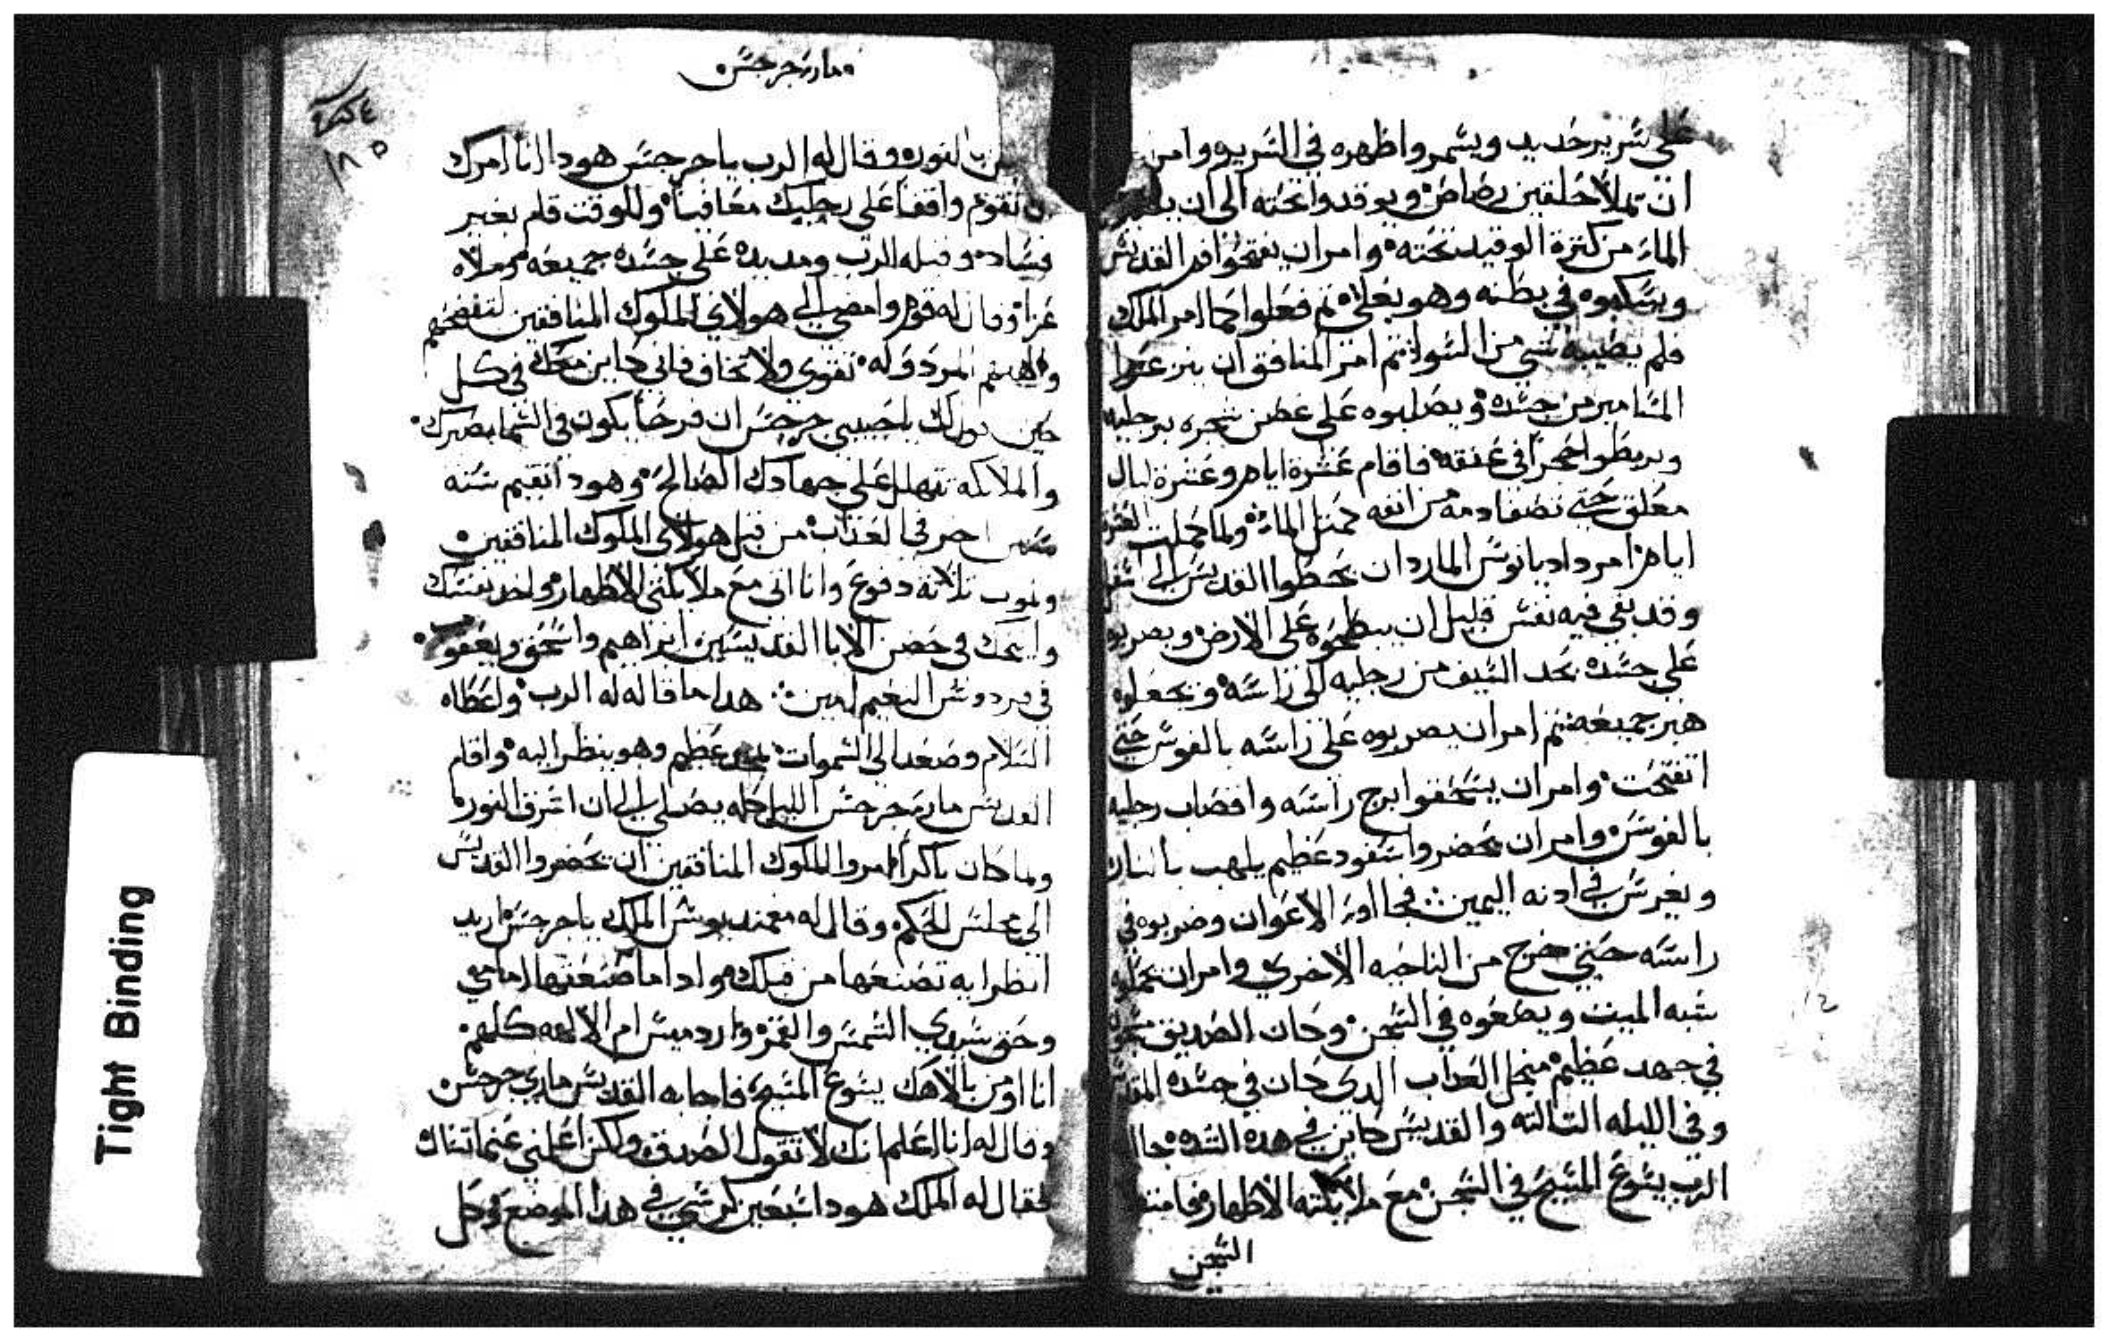 على سرير حديد ويسمروا ظهره في السرير وامر
ان تملا حلقين رصاص ويوقدوا تحته الى ان
الماء من كترة الوقيد تحته وامر ان يفتحوا فم القديس
ويسكبوه في بطنه وهو يغلا تم فعلوا كما امر الملك
فلم يصيبه شي من السوا تم امر المنافق ان ينزعوا
المسامير من جسده ويصلبوه على غصن شجره برجليه
ويربطوا حجرا في عنقه فاقام عشرة ايام وعشرة ليال
معلق حتى تصفا دمه من انفه كمتل الماء ولما كملت العشرة
ايام امر داديانوس المارد ان يحطوا القديس الى اسفل
وقد بقى فيه نفس قليل ان يبطحوه على الارض ويضربوه
على جسده بحد السيف من رجليه الى راسه ويجعلوه
هبر جميعه تم امر ان يضربوه على راسه بالفوس حتى
انفتحت وامر ان يسحقوا برج راسه واقصاب رجليه
بالفوس وامر ان يحضروا سفود عظيم يلهب بالنار
ويغرس في ادنه اليمين الاعوان وضربوه في
راسه حتى خرج من الناحيه الاخرى وامر ان يحملوه
شبه الميت ويضعوه في السجن وكان الصديق
في جهد عظيم من اجل العداب الدي كان في جسده المقدس
وفي الليله التالته والقديس كاين في هده الشده جا
الرب يسوع المسيح في السجن مع ملايكته الاطهار
السجن
ماري جرجس
١٨٥
بالنوره وقال له الرب يا جرجس هودا انا امرك
ان تقوم واقفا على رجليك معافيا وللوقت قام بغير
فساد وقبله الرب ومد يده على جسده جميعه وملاه
عزا وقال له قوم وامضي الى هولاي الملوك المنافقين لتفضحهم
والهتهم المردوله تقوى ولا تخاف فاني كاين معك في كل
حين اقول لك يا حبيبي جرجس ان فرحا يكون في السما بصبرك
والملايكه تتهلل على جهادك الصالح وهودا تقيم سته
سنين اخر في العداب من قبل هولاي الملوك المنافقين
وتموت تلاته دفوع وانا اتي مع ملايكتي الاطهار واخد نفسك
وانيحك في حضن الابا القديسين ابراهيم واسحق ويعقوب
في فردوس النعيم امين هدا ما قاله له الرب واعطاه
السلام وصعد الى السموات بمجد عظيم وهو ينظر اليه واقام
القديس ماري جرجس الليل كله يصلي الى ان اشرق النور
ولما كان باكرا امروا الملوك المنافقين ان يحضروا القديس
الى مجلس الحكم وقال له مغمنديوس الملك يا جرجس اريد
انظر ايه تصنعها من قبلك وادا ما صنعتها امامي
وحق سيدي الشمس والقمر وارداميس ام الالهه كلهم
انا اومن بالاهك يسوع المسيح فاجابه القديس ماري جرجس
وقال له انا اعلم انك لا تقول الصدق ولكن اعلمني عن ما تساك
فقال له الملك هودا سبعين كرسي في هدا الموضع وكل